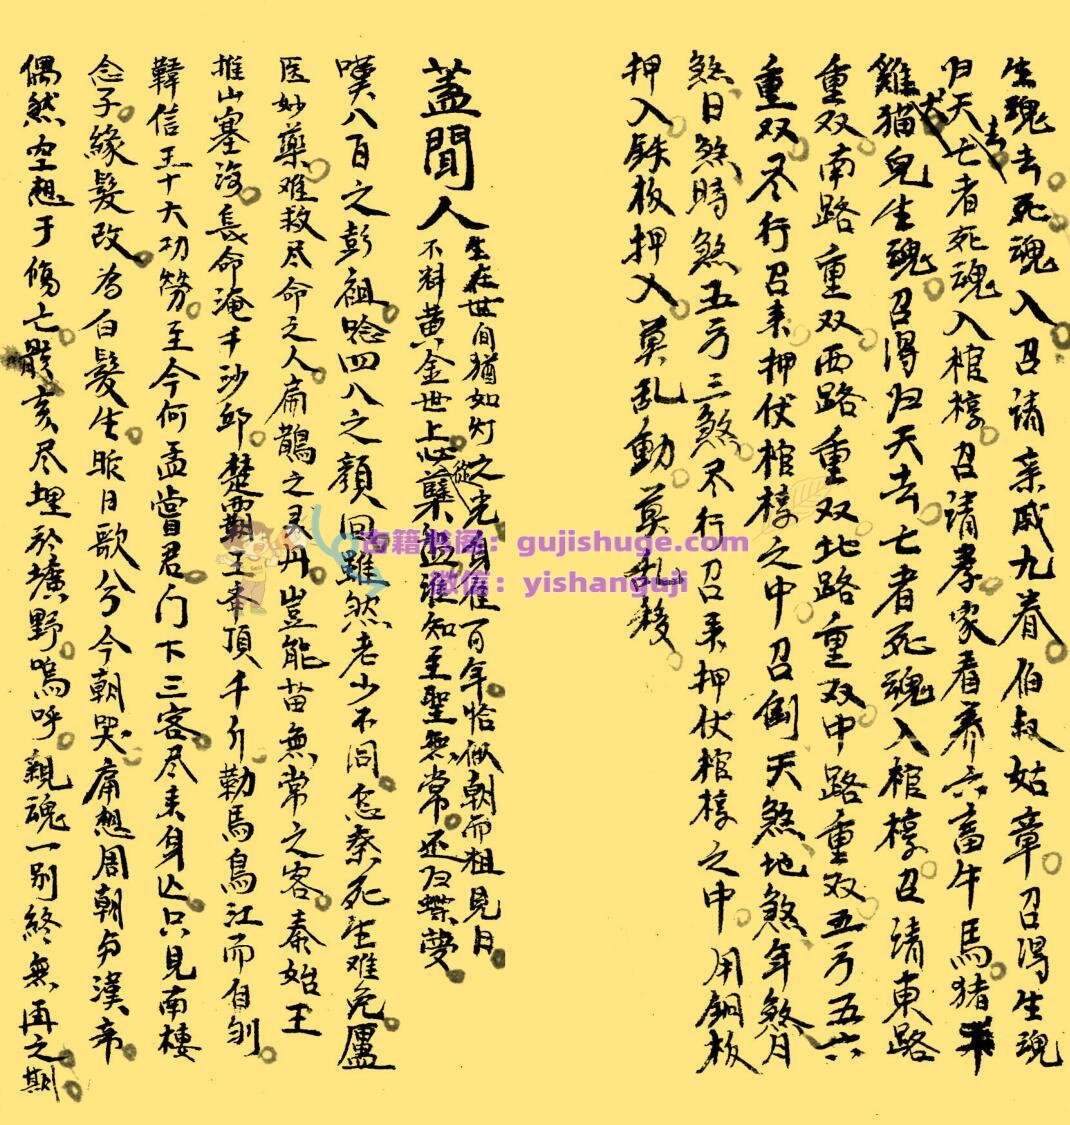 生魂去死魂入召请亲戚九眷伯叔姑章召得生魂
归天去亡者死魂入棺椁召请孝家看养六畜牛馬猪羊
雞猫犬兒生魂召得归天去亡者死魂入棺椁召请東路
重双南路重双西路重双北路重双中路重双五方五六
重双尽行召来押伏棺椁之中召倒天煞地煞年煞月
煞日煞時煞五方三煞尽行召来押伏棺椁之中用銅板
押入鉄板押入莫乱動莫乱移
蓋聞人
生在世间猶如灯之光身在百年恰似朝而祖見日
不料黄金世上從知至聖無常还归蝶夢
嘆八百之彭祖唸四八之顏回雖然老少不同怎奈死生难免盧
医妙藥难救尽命之人扁鵲之灵丹豈能苗無常之客秦始王
推山塞海長命淹于沙邱楚霸王峯頂千斤勒馬烏江而自刎
韓信五十大功劳至今何孟嘗君门下三客尽来身亡只見南樓
念子緣髮改為白髮生昨日歌兮今朝哭痛想周朝与漢帝
偶然空想于傷亡骸亥尽埋於壙野嗚呼親魂一别終無再之期
古籍书阁：gujishuge.com
微信：yishanguji